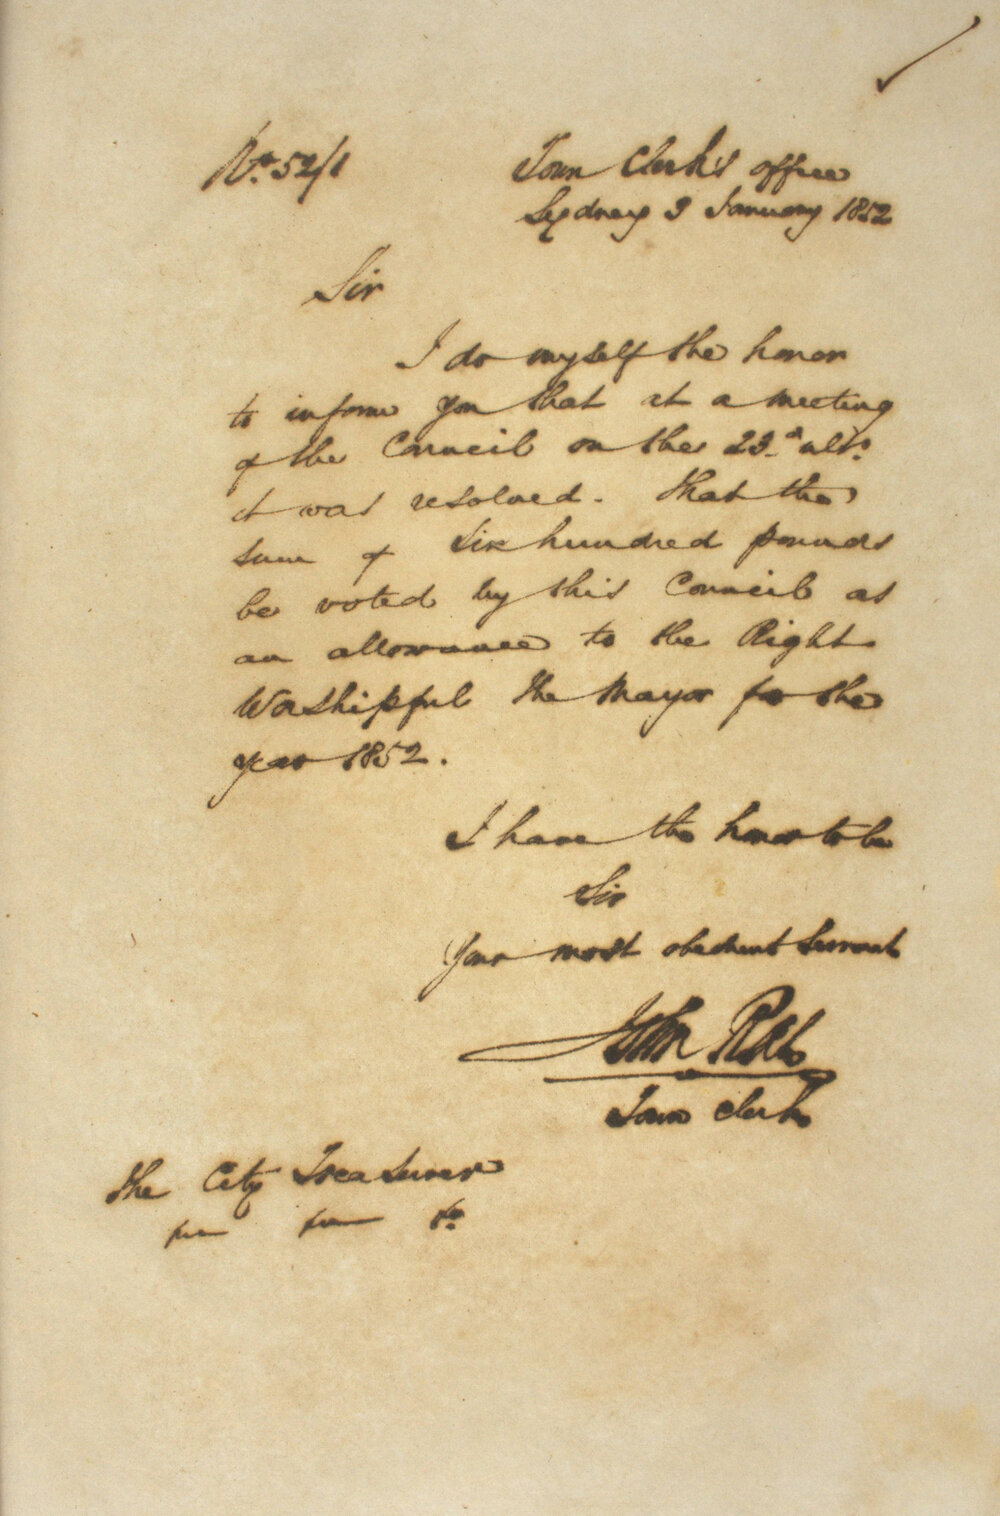 No. 52/1
Town Clerk's office
Sydney 3 January 1852
Sir
I do myself the honor
to inform you that at a meeting
of the Council on the 23d ulto.
it was resolved. That the
sum of Six hundred pounds
be voted by this Council as
an allowance to the Right
Worshipful the Mayor for the
year 1852.
I have the honor to be
Sir
Your most obedient Servant
John Rae
Town Clerk
The City Treasurer